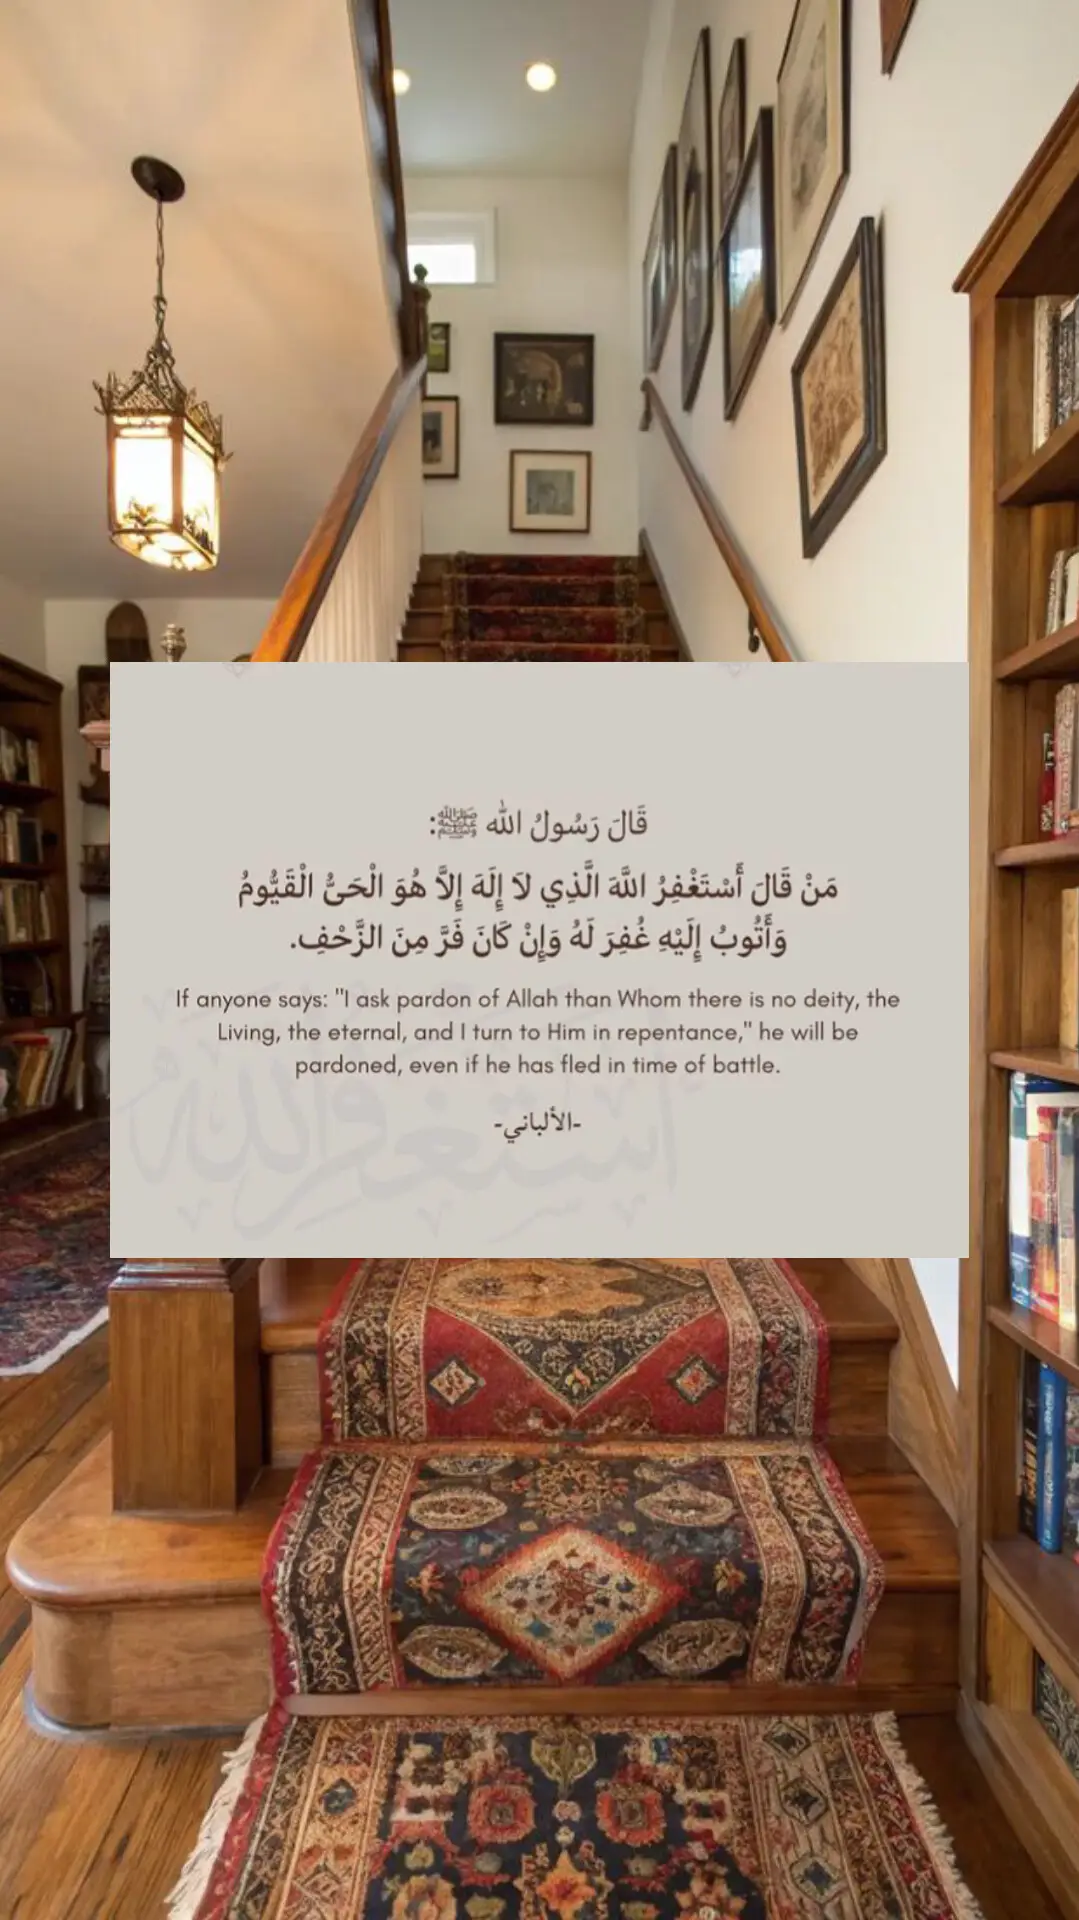 قَالَ رَسُولُ الله ﷺ:
مَنْ قَالَ أَسْتَغْفِرُ اللَّهَ الَّذِي لاَ إِلَهَ إِلاَّ هُوَ الْحَىُّ الْقَيُّومُ
وَأَتُوبُ إِلَيْهِ غُفِرَ لَهُ وَإِنْ كَانَ فَرَّ مِنَ الزَّحْفِ.
If anyone says: "I ask pardon of Allah than Whom there is no deity, the
Living, the eternal, and I turn to Him in repentance," he will be
pardoned, even if he has fled in time of battle.
-الألباني-
أستغفر الله